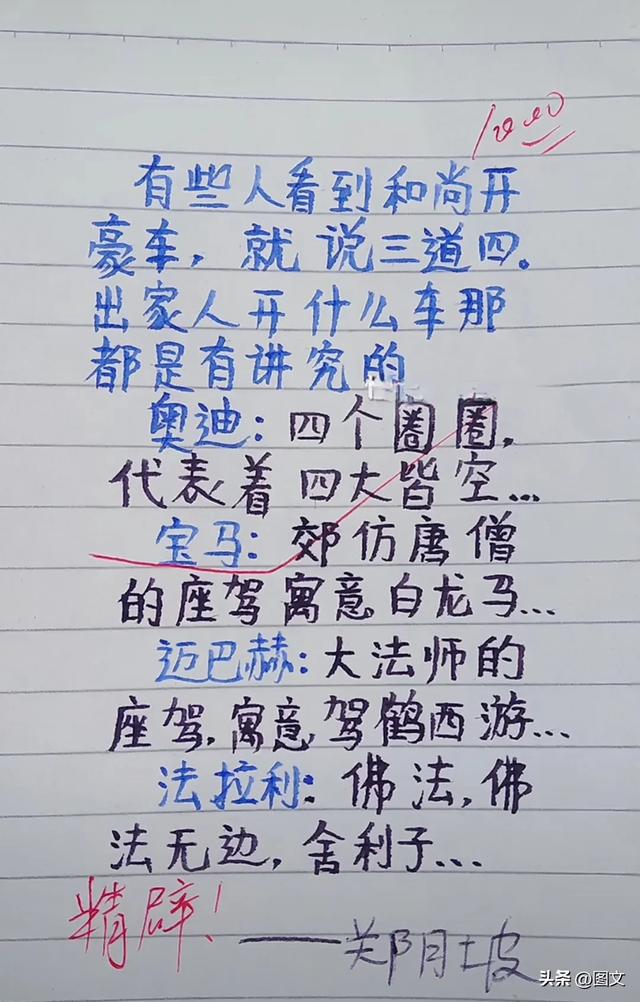 1000
有些人看到和尚开
豪车，就说三道四。
出家人开什么车那
都是有讲究的
奥迪：四个圈圈，
代表着四大皆空…
宝马：郊仿唐僧
的座驾寓意白龙马…
迈巴赫：大法师的
座驾，寓意驾鹤西游…
法拉利：佛法，佛
法无边，舍利子…
精辟！
——郑月坡
头条 @图文